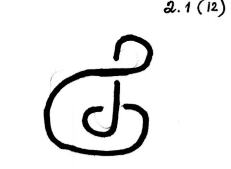 2.1 (12)